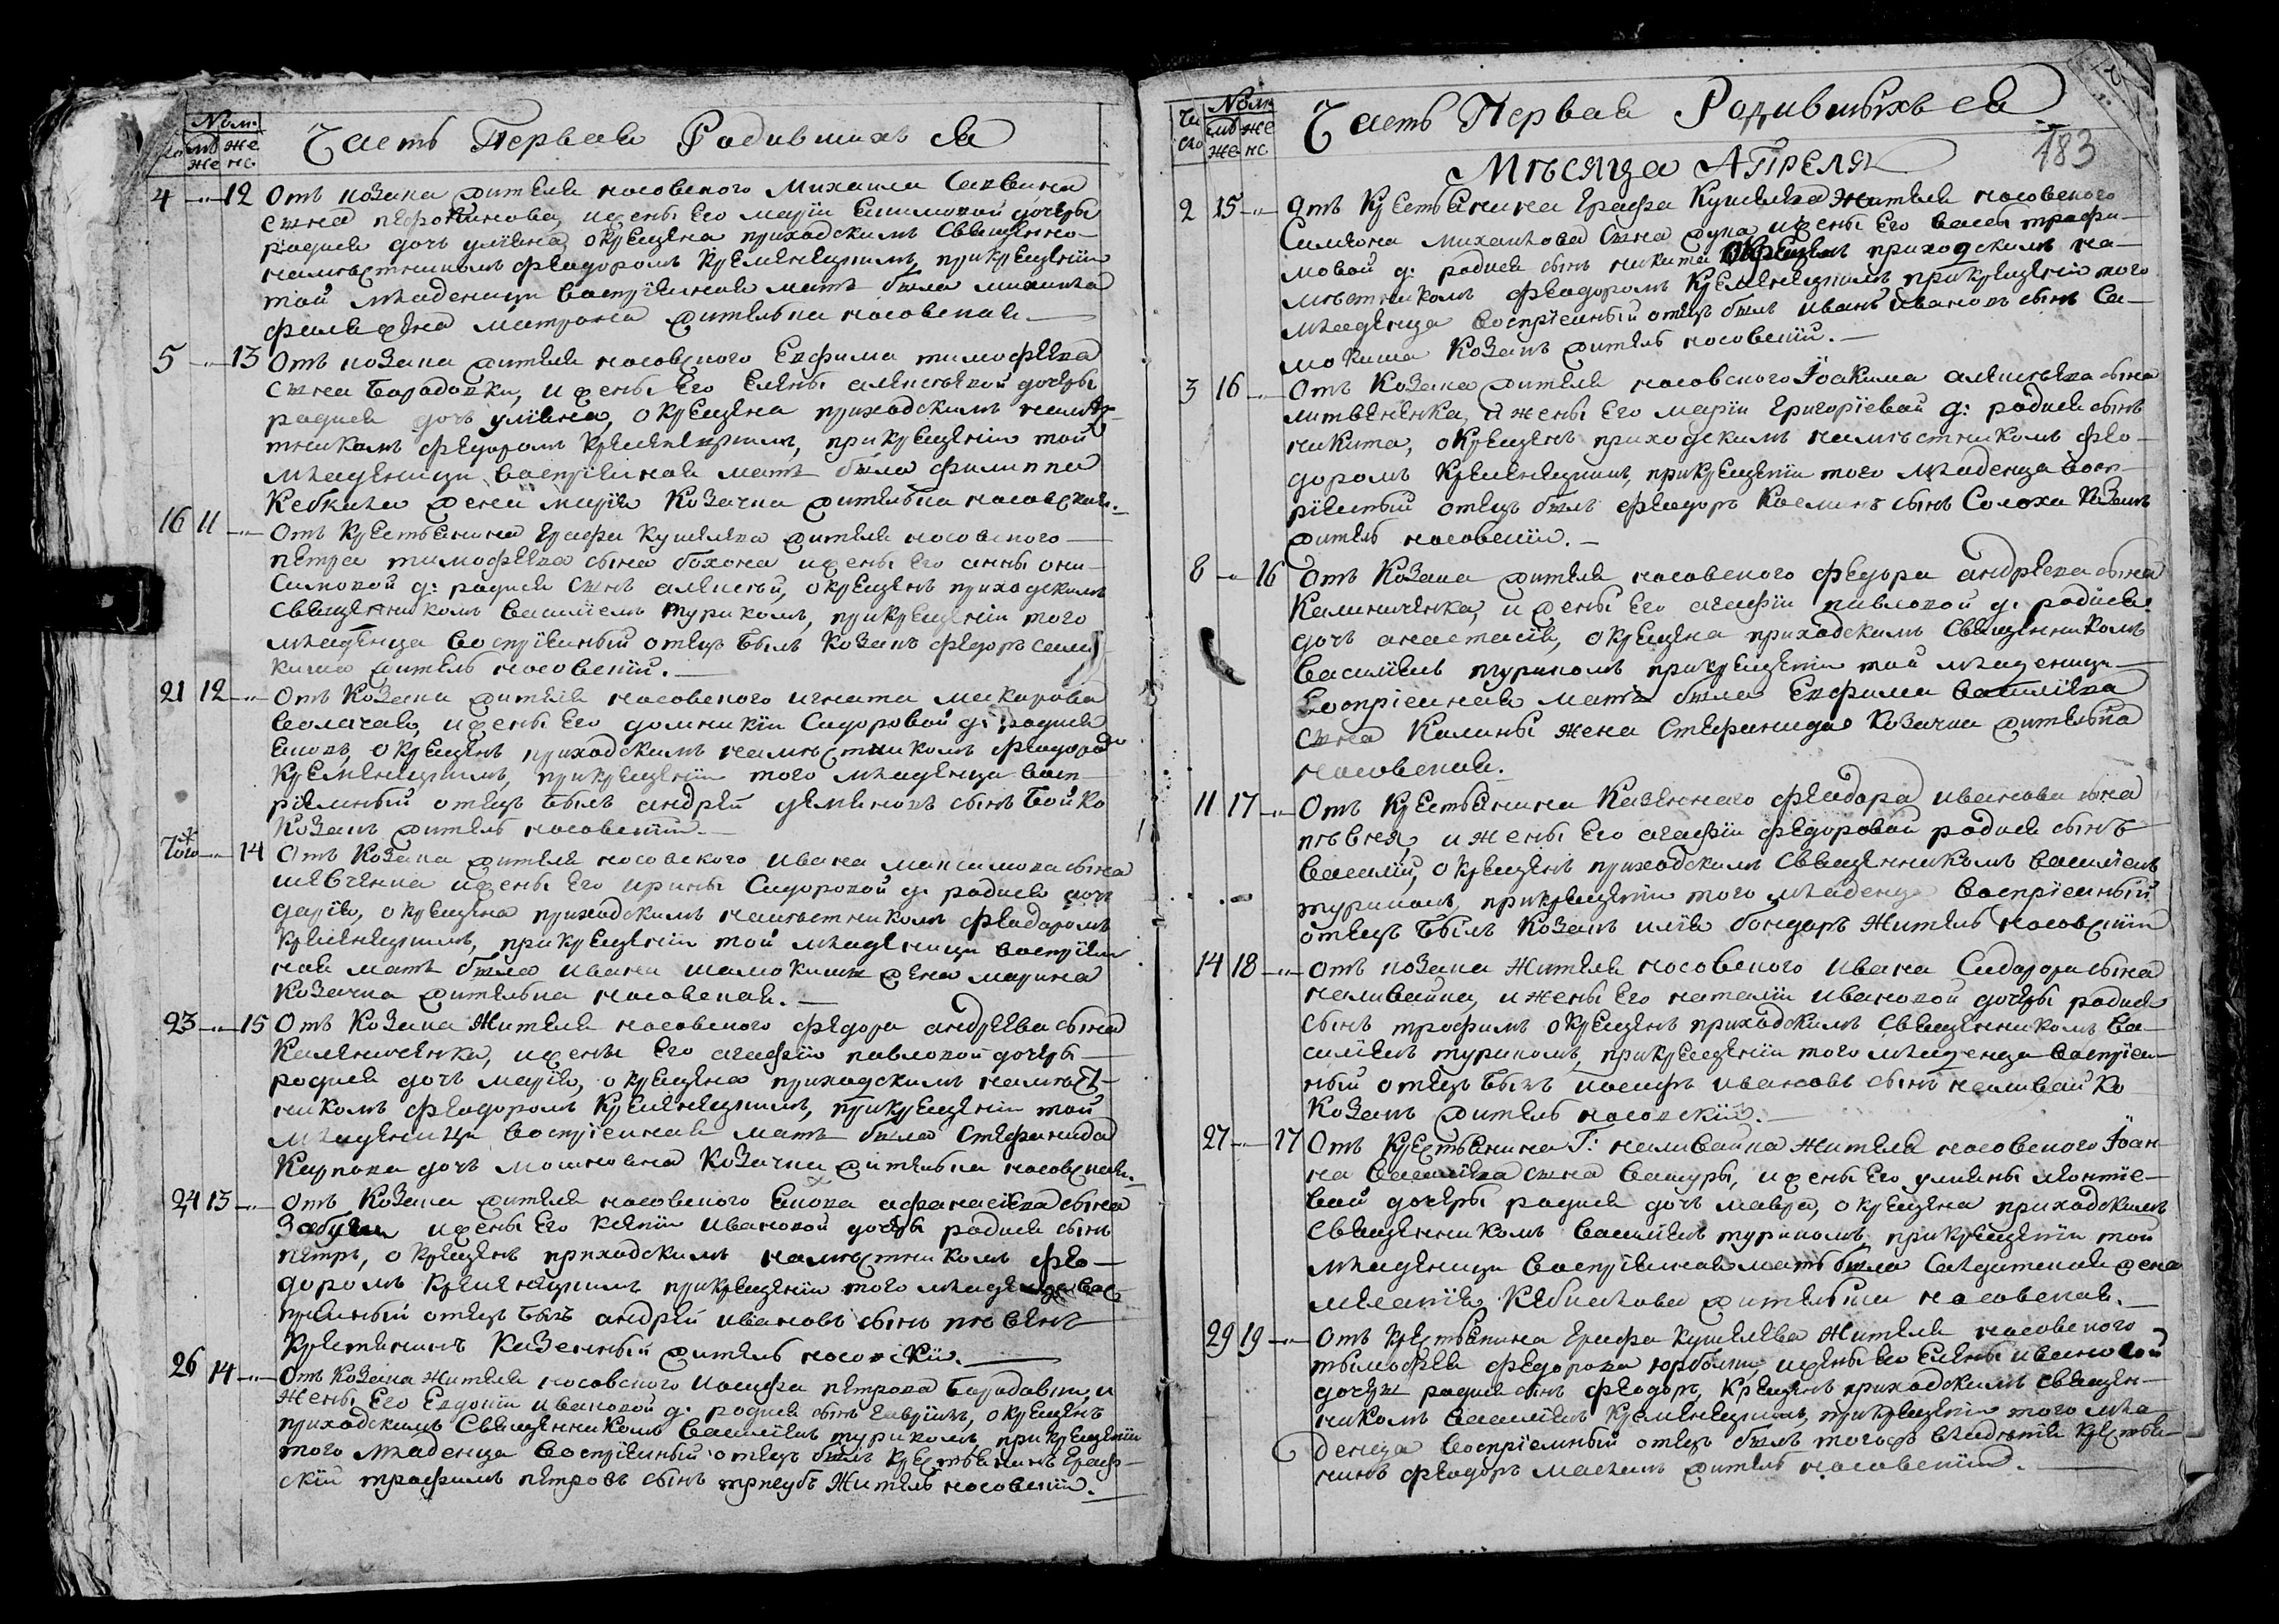 Nом.
Часть Первая Родившихъ ся
4 12 Отъ козака жителя носовского Михаила Саввина
сына жены Его Маріи Ефимовой дочеры
родися дочь уліяна, окрещена приходскимъ Священно
намѣстникомъ Феодоромъ Кременецкимъ, при крещеніи
той младеницы воспріемная мать была
жена Матрона жителька носовская.
5 13 Отъ козака жителя носовского Евфима тимофѣева
сына Бородавки, и жены Его Елены алексѣевой дочеры
родися дочь уліяна, окрещена приходскимъ намѣс-
тникомъ Феодоромъ Кременецкимъ, при крещеніи той
младеницы воспріемная мать была филиппа
жена марія Козачка жителька носовская.
16 11 Отъ Крестьянина Графа Кушелева жителя носовского
петра тимофѣева сына и жены Его анны они-
симовой д: родися сынъ алексѣй, окрещенъ приходскимъ
Священникомъ василіемъ турикомъ, при крещеніи того
младенца воспріемный отецъ былъ Козакъ Федоръ само
киша житель носовскій.
21 12 Отъ Козака жителя носовского игната макарова
и жены Его домникіи Сидоровой д: родися
окрещенъ приходскимъ намѣстникомъ Феодоромъ
Кременецкимъ, при крещеніи того младенца восп-
ріемный отецъ былъ андрей деминовъ сынъ Бойко
Козакъ житель носовскій.
Того ж 14 Отъ Козака жителя носовского ивана максимова сына
шевченка и жены Его ирины Сидоровой д: родися дочь
дарія, окрещена приходскимъ намѣстникомъ Феодоромъ
Кременецкимъ, при крещеніи той младеницы воспріем
ная мать была ивана шамокиши жена марина
Козачка жителька носовская.
23 15 Отъ Козака Жителя носовского Федора андреева сына
Калениченка, и жены Его агафіи павловой дочеры
родися дочь марія, окрещена приходскимъ намѣст-
никомъ Феодоромъ Кременецкимъ, при крещеніи той
младеницы воспріемная мать была Стефанида
Карпова дочь Козачка жителька носовская.
24 13 Отъ Козака жителя носовского Енова афанасіева сына
и жены Его Ксеніи ивановой дочеры родися сынъ
петръ, окрещенъ приходскимъ намѣстникомъ фео-
доромъ Кременецкимъ при крещеніи того младенца вос
пріемный отецъ былъ андрей ивановъ сынъ пѣвень
Крестьянинъ Казенный житель носовскій.
26 14 Отъ Козака Жителя носовского иосифа петрова Бородавки, и
жены Его Евдокіи ивановой д: родися сынъ гавріилъ, окрещенъ
приходскимъ Священникомъ василіемъ турикомъ, при крещеніи
того младенца воспріемный отецъ былъ Крестьянинъ Граф-
скій трофимъ петровъ сынъ Житель носовскій.
Чи
сло
Nом.
Часть Первая Родившихъ ся
183
Мѣсяца АПРЕЛЯ
2 15 Отъ Крестьянина Графа Кушелева Жителя носовского
Симеона Михайлова сына и жены Его васы трофи-
мовой д: родися сынъ никита окрещенъ приходскимъ на-
мѣстникомъ Феодоромъ Кременецкимъ при крещеніи того
младенца воспріемный отецъ былъ иванъ ивановъ сынъ Са-
мокиша Козакъ житель носовскій.
3 16 Отъ Козака жителя носовского Іоакима алексѣева сына
литвененка, и жены Его маріи Григоріевой д: родися сынъ
никита, окрещенъ приходскимъ намѣстникомъ фео-
доромъ Кременецкимъ, при крещеніи того младенца восп-
ріемный отецъ былъ Феодоръ сынъ Солоха Козакъ
житель носовскій.
8 16 Отъ Козака жителя носовского Федора андреева сына
Калиниченка, и жены Его агафіи павловой д: родися
дочь анастасія, окрещена приходскимъ Священникомъ
василіемъ турикомъ при крещеніи той младеницы
воспріемная мать была Евфима василіева
сына Калины жена Стефанида Козачка жителька
носовская.
11 17 Отъ Крестьянина Казенного Феодора иванова сына
пѣвня, и жены Его агафіи Федоровой родися сынъ
василій, окрещенъ приходскимъ Священникомъ василіемъ
турикомъ, при крещеніи того младенца воспріемный
отецъ былъ Козакъ илія бондаръ Житель носовскій
14 18 Отъ козака Жителя носовского ивана Сидорова сына
наливайка, и жены Его наталіи ивановой дочеры родися
сынъ трофимъ окрещенъ приходскимъ Священникомъ ва-
силіемъ турикомъ, при крещеніи того младенца воспріем-
ный отецъ былъ иосифъ ивановъ сынъ наливайко
Козакъ житель носовскій.
27 17 Отъ Крестьянина Г: наливайка Жителя носовского Іоан-
на василіева сына и жены Его уліяны леонтіе-
вой дочеры родися дочь мавра, окрещена приходскимъ
Священникомъ василіемъ турикомъ, при крещеніи той
младеницы воспріемная мать была жена
меланія жителька носовская.
29 19 Отъ Крестьянина Графа Кушелева Жителя носовского
тимофея Федорова и жены Его Елены ивановой
дочеры родися сынъ Феодоръ, Крещенъ приходскимъ Священ-
никомъ василіемъ Кременецкимъ, при крещеніи того мла-
денца воспріемный отецъ былъ тогожъ владѣнія Крестья-
нинъ Феодоръ житель носовскій.